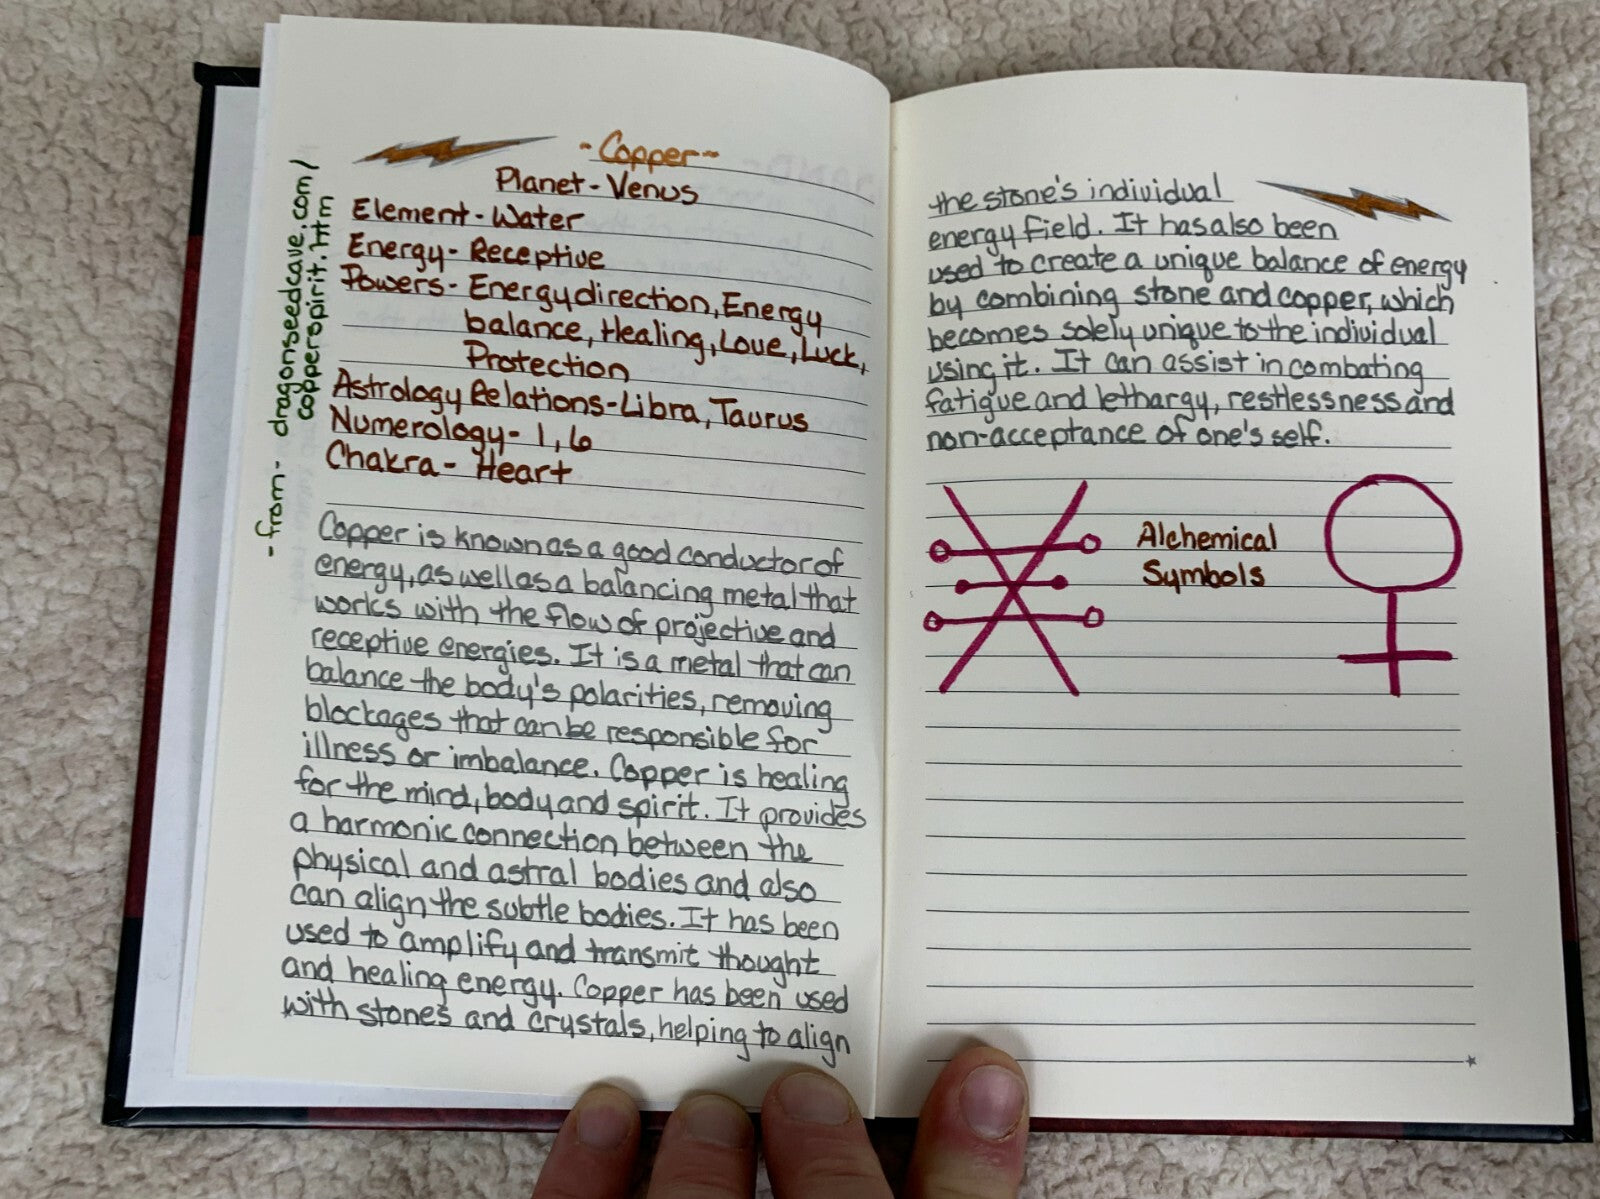 -from- dragonseedcave.com/
copperspirit.htm
~Copper~
Planet-Venus
Element-Water
Energy-Receptive
Powers-Energy direction, Energy
balance, Healing, Love, Luck,
Protection
Astrology Relations-Libra, Taurus
Numerology- 1, 6
Chakra- Heart
Copper is known as a good conductor of
energy, as well as a balancing metal that
works with the flow of projective and
receptive energies. It is a metal that can
balance the body's polarities, removing
blockages that can be responsible for
illness or imbalance. Copper is healing
for the mind, body and spirit. It provides
a harmonic connection between the
physical and astral bodies and also
can align the subtle bodies. It has been
used to amplify and transmit thought
and healing energy. Copper has been used
with stones and crystals, helping to align
the stone's individual
energy field. It has also been
used to create a unique balance of energy
by combining stone and copper, which
becomes solely unique to the individual
using it. It can assist in combating
fatigue and lethargy, restlessness and
non-acceptance of one's self.
Alchemical
Symbols